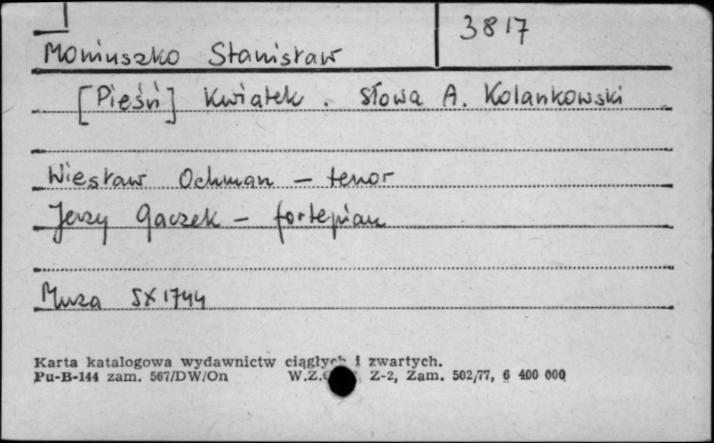 3817
Moniuszko Stanisław
[Pieśń] Kwiatek. Słowa A. Kolankowski
Wiesław Ochman - tenor
Jerzy Gaczek - fortepian
Muza SX 1744
Karta katalogowa wydawnictw ciągłych i zwartych.
Pu-B-144 zam. 567/DW/On W.Z. Z-2, Zam. 502/77, 6 400 000